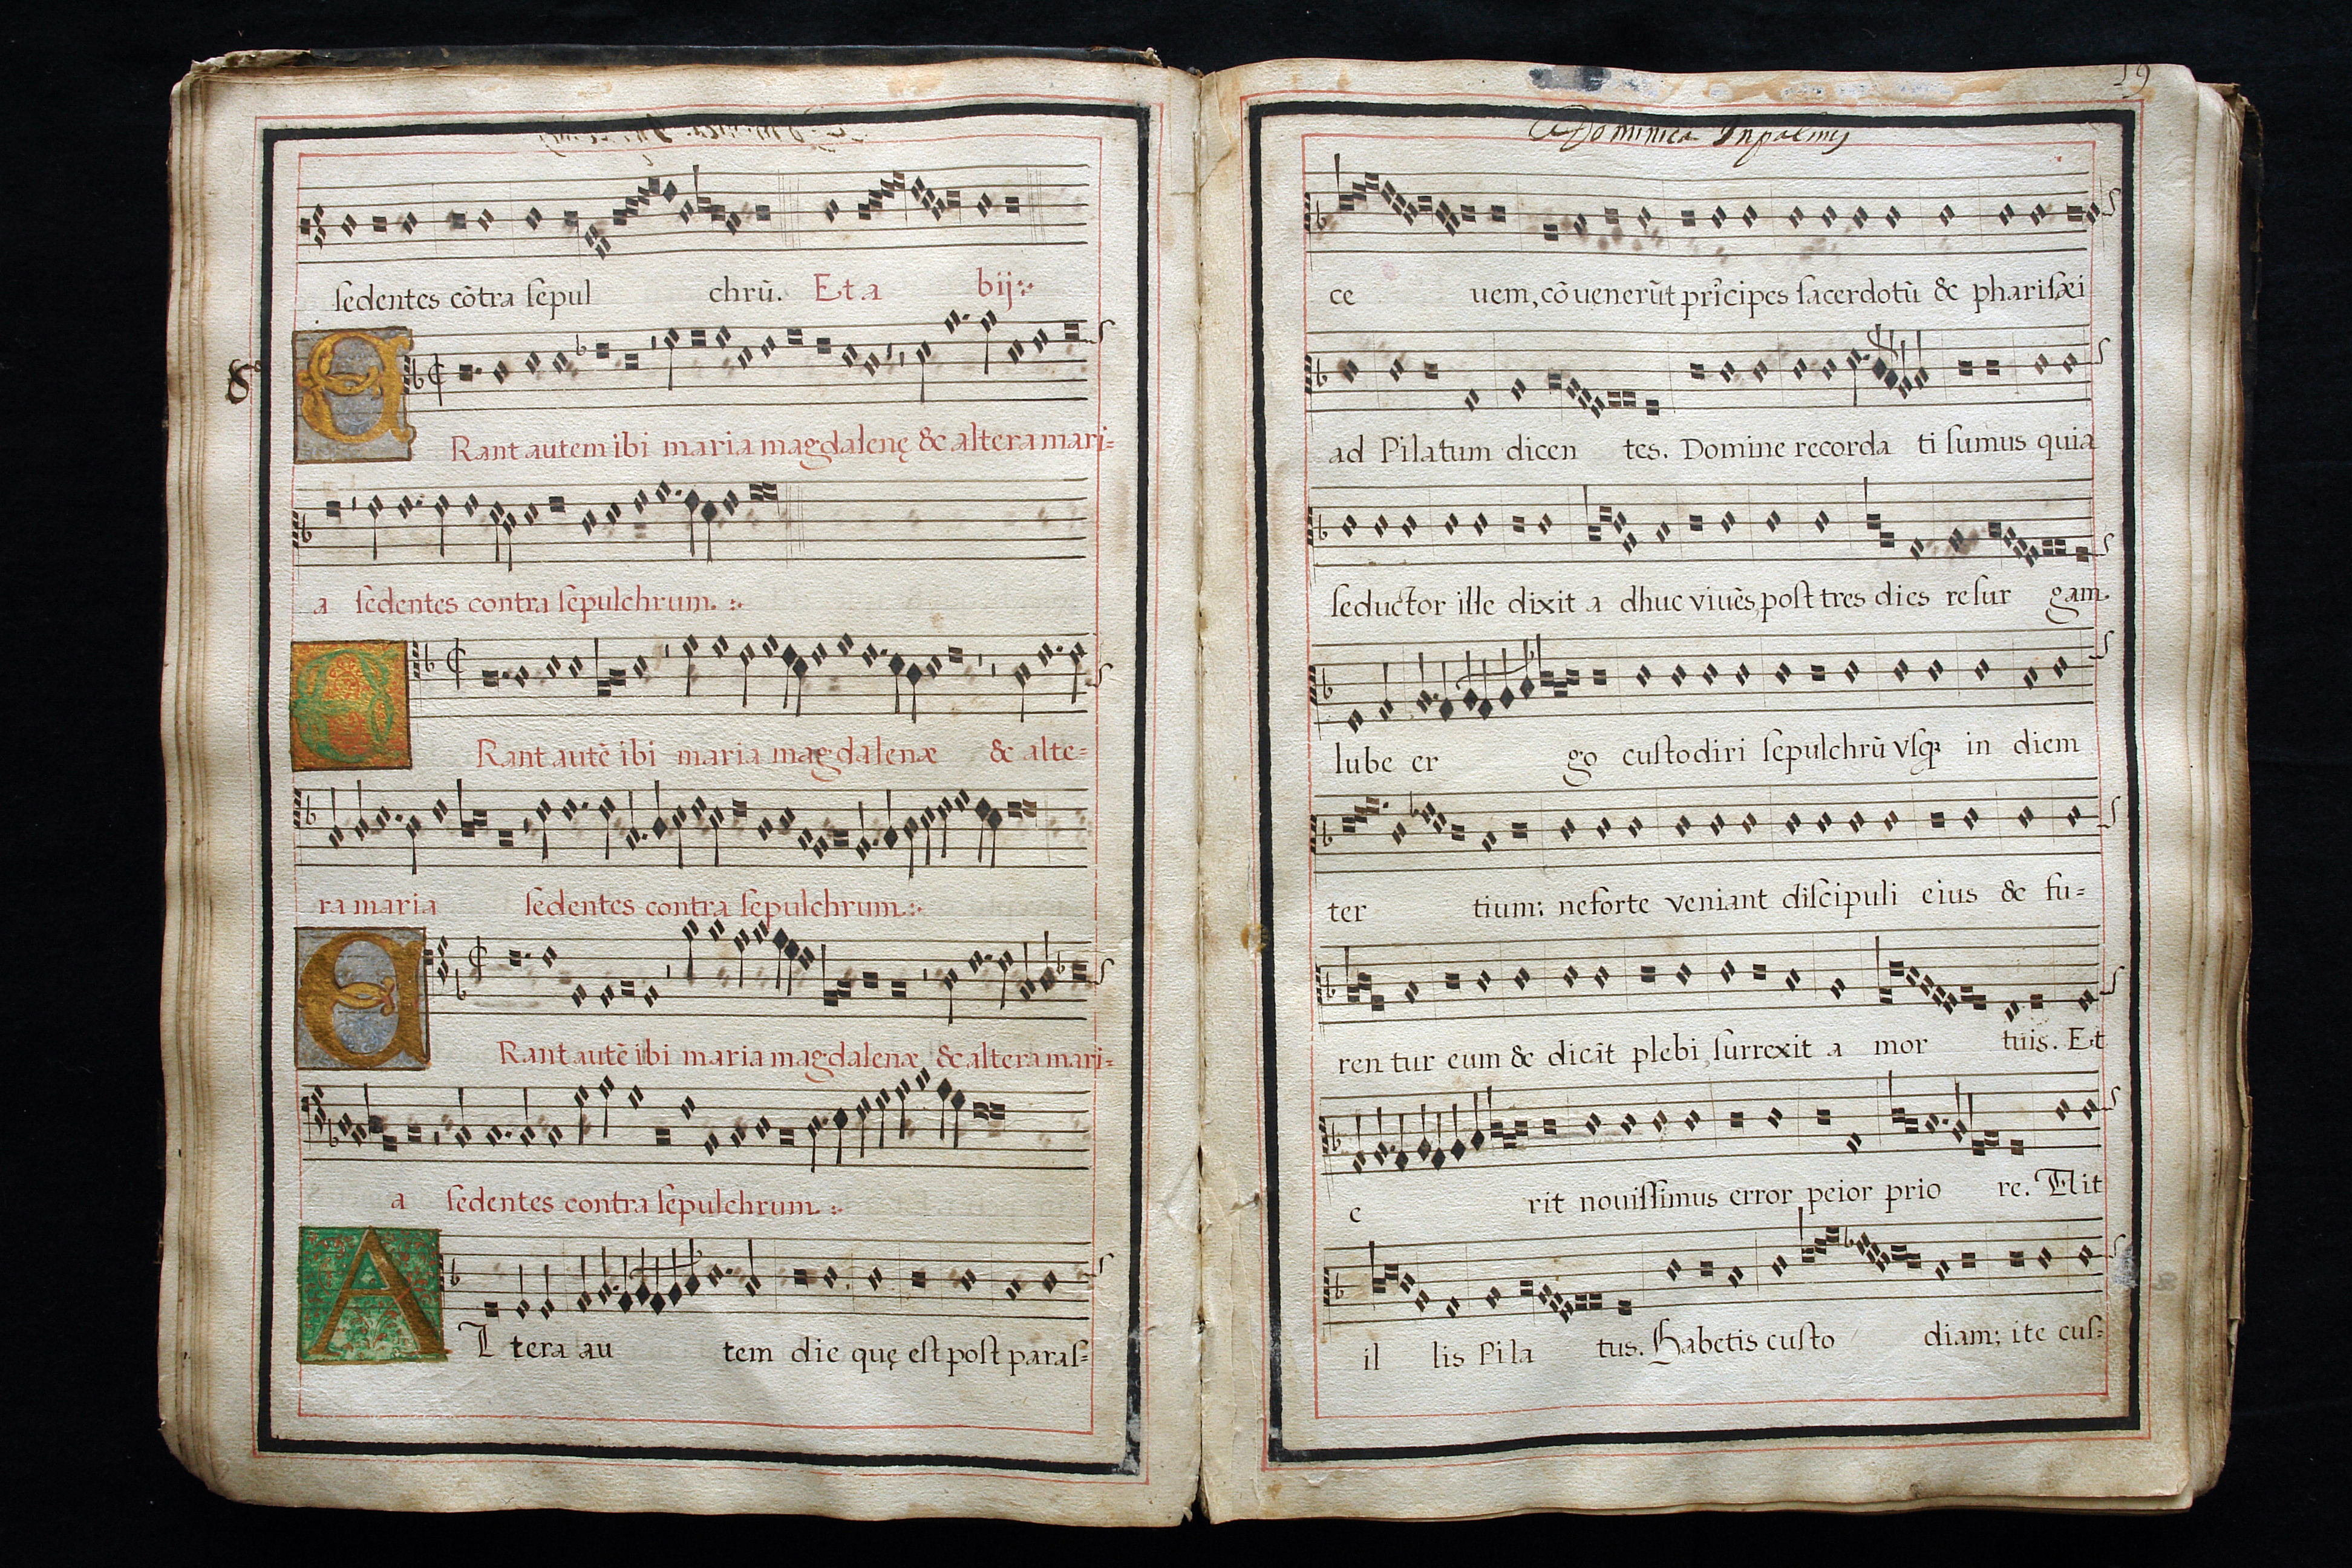 sedentes cōtra sepul chrū. Et a bij
8
ERant autem ibi maria magdalenę & altera mari=
a sedentes contra sepulchrum.
ERant autē ibi maria magdalenæ & alte=
ra maria sedentes contra sepulchrum.
ERant autē ibi maria magdalenæ, & altera mari=
a sedentes contra sepulchrum.
ALtera au tem die quę est post paras=
19
Dominica Inpalmis
ce uem, cōuenerūt prīcipes sacerdotū & pharisæi
ad Pilatum dicen tes. Domine recorda ti sumus quia
seductor ille dixit a dhuc viuēs, post tres dies resur gam.
Iube er go custodiri sepulchrū vsq; in diem
ter tium: neforte veniant discipuli eius & fu=
ren tur eum & dicāt plebi, surrexit a mor tuis. Et
e rit nouissimus error peior prio re. Ait
il lis Pila tus. Habetis custo diam; ite cus=